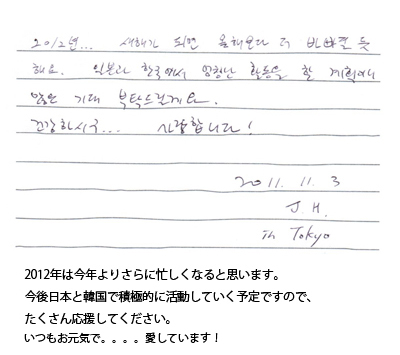 2012년... 새해가 되면 올해보다 더 바빠질 듯
해요. 일본과 한국에서 엄청난 활동을 할 계획이니
많은 기대 부탁드릴게요.
건강하시구... 사랑합니다!
2011. 11. 3
J.H.
In Tokyo
2012年は今年よりさらに忙しくなると思います。
今後日本と韓国で積極的に活動していく予定ですので、
たくさん応援してください。
いつもお元気で。。。。愛しています！